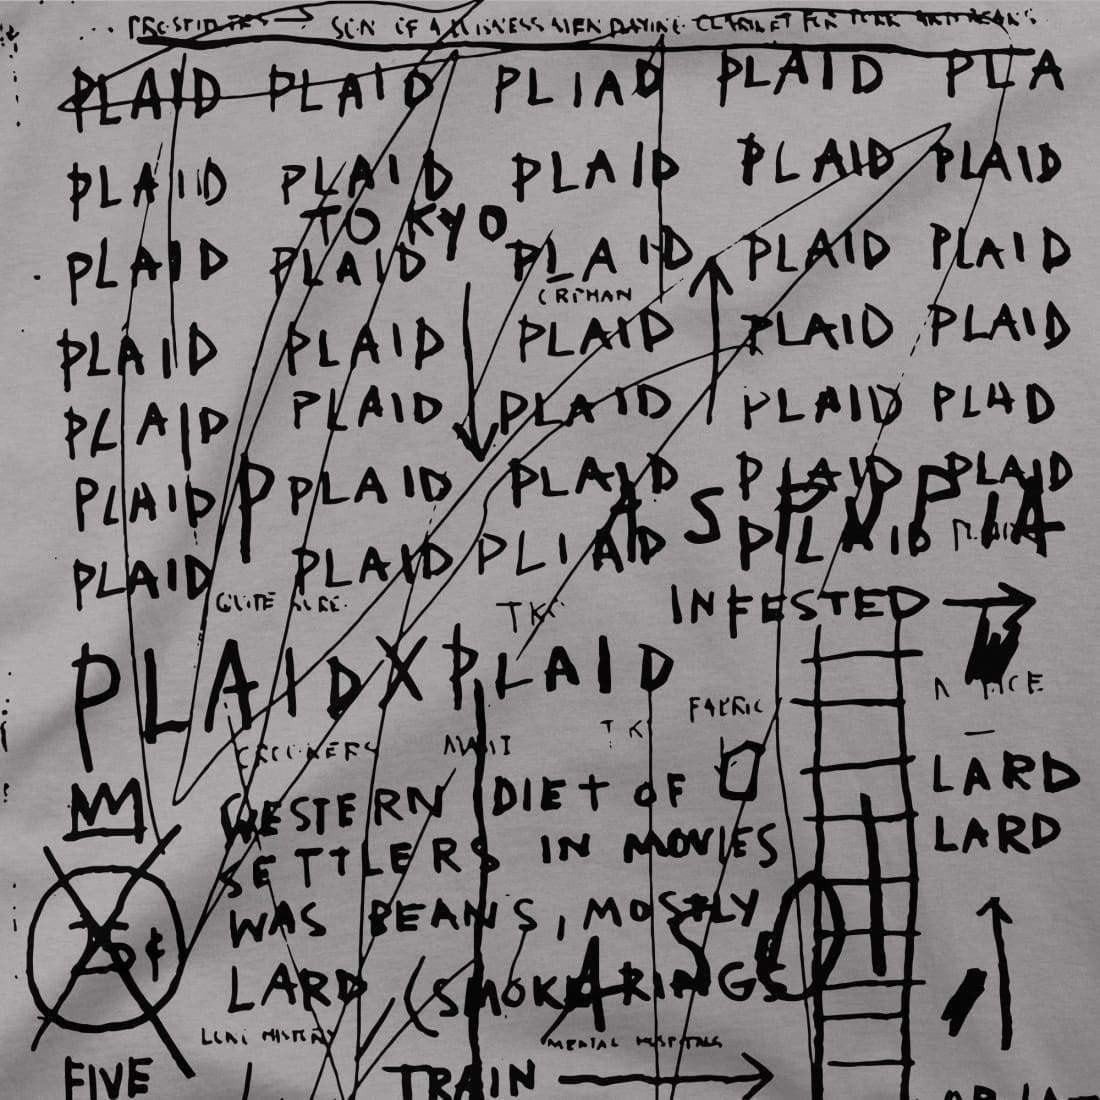 SON OF A BUSINESS MEN PLAYING CLARINET FOR
PLAID PLAID PLIAD PLAID PLA
PLAID PLAID PLAID PLAID PLAID
TOKYO
PLAID PLAID PLAID PLAID PLAID
ORPHAN
PLAID PLAID PLAID PLAID PLAID
PLAID PLAID PLAID PLAID PLAID
PLAID P PLAID PLAID PLAID PLAID
A S
PLAID PLAID PLIAD PLAID
QUITE SURE. TK INFESTED
PLAID X PLAID
FABRIC
TK
WESTERN DIET OF LARD
SETTLERS IN MOVIES LARD
WAS BEANS, MOSTLY
5¢
LARD (SMOKARINGS
MENTAL HOSPITALS
FIVE TRAIN